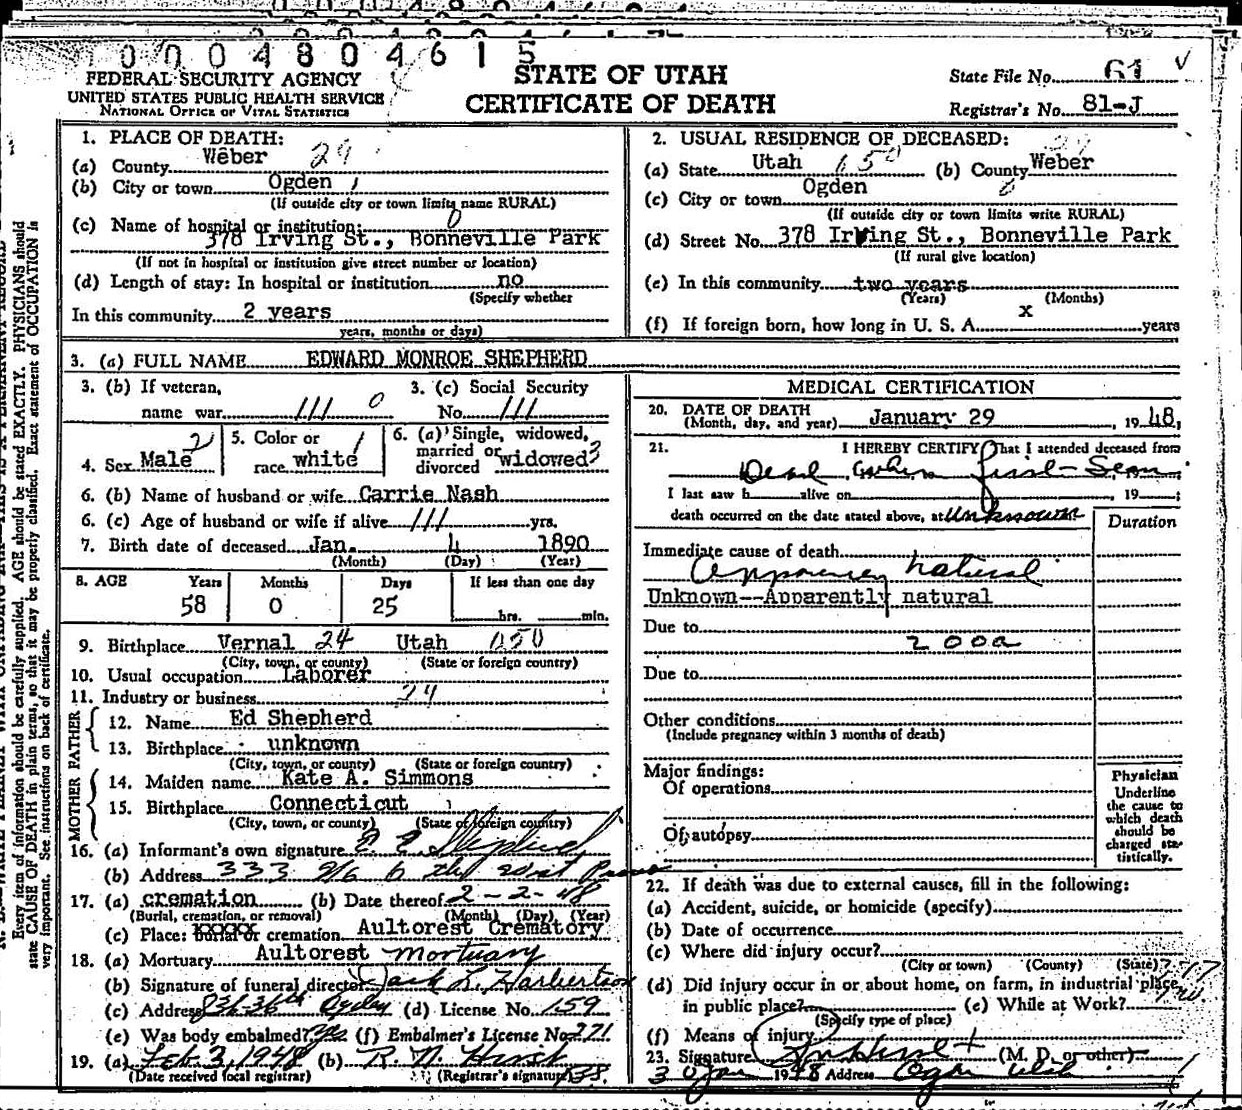 0 0 0 4 8 0 4 6 1 5
FEDERAL SECURITY AGENCY
UNITED STATES PUBLIC HEALTH SERVICE
NATIONAL OFFICE OF VITAL STATISTICS
STATE OF UTAH
CERTIFICATE OF DEATH
State File No. 61
Registrar's No. 81-J
1. PLACE OF DEATH:
(a) County Weber 29
(b) City or town Ogden
(If outside city or town limits name RURAL)
(c) Name of hospital or institution: 0
378 Irving St., Bonneville Park
(If not in hospital or institution give street number or location)
(d) Length of stay: In hospital or institution no
(Specify whether
In this community 2 years
years, months or days)
2. USUAL RESIDENCE OF DECEASED:
(a) State Utah 150 (b) County Weber
(c) City or town Ogden
(If outside city or town limits write RURAL)
(d) Street No. 378 Irving St., Bonneville Park
(If rural give location)
(e) In this community two years
(Years) (Months)
(f) If foreign born, how long in U. S. A. x years
3. (a) FULL NAME EDWARD MONROE SHEPHERD
3. (b) If veteran,
name war /// 0
3. (c) Social Security
No. ///
4. Sex Male 2
5. Color or
race white 1
6. (a) Single, widowed,
married or
divorced widowed 3
6. (b) Name of husband or wife Carrie Nash
6. (c) Age of husband or wife if alive /// yrs.
7. Birth date of deceased Jan. 4 1890
(Month) (Day) (Year)
8. AGE Years Months Days If less than one day
58 0 25 hrs. min.
9. Birthplace Vernal 24 Utah 050
(City, town, or county) (State or foreign country)
10. Usual occupation Laborer
11. Industry or business 24
FATHER
12. Name Ed Shepherd
13. Birthplace unknown
(City, town, or county) (State or foreign country)
MOTHER
14. Maiden name Kate A. Simmons
15. Birthplace Connecticut
(City, town, or county) (State or foreign country)
16. (a) Informant's own signature E. E. Shepherd
(b) Address 333 West Provo
17. (a) cremation (b) Date thereof 2-2-48
(Burial, cremation, or removal) (Month) (Day) (Year)
(c) Place: burial or cremation Aultorest Crematory
18. (a) Mortuary Aultorest Mortuary
(b) Signature of funeral director Jack R. Harbertson
(c) Address 836 36th Ogden (d) License No. 159
(e) Was body embalmed? Yes (f) Embalmer's License No. 271
19. (a) Feb. 3, 1948 (b) R. N. Hirst
(Date received local registrar) (Registrar's signature)
MEDICAL CERTIFICATION
20. DATE OF DEATH
(Month, day, and year) January 29, 1948,
21. I HEREBY CERTIFY That I attended deceased from
Dead when first seen
I last saw h alive on , 19 ;
death occurred on the date stated above, at unknown
Duration
Immediate cause of death
Apparently natural
Unknown--Apparently natural
Due to
200a
Due to
Other conditions
(Include pregnancy within 3 months of death)
Major findings:
Of operations
Of autopsy
Physician
Underline
the cause to
which death
should be
charged sta-
tistically.
22. If death was due to external causes, fill in the following:
(a) Accident, suicide, or homicide (specify)
(b) Date of occurrence
(c) Where did injury occur?
(City or town) (County) (State)
(d) Did injury occur in or about home, on farm, in industrial place,
in public place? (e) While at Work?
(Specify type of place)
(f) Means of injury
23. Signature (M. D. or other)
30 Jan 1948 Address Ogden Utah
Every item of information should be carefully supplied. AGE should be stated EXACTLY. PHYSICIANS should
state CAUSE OF DEATH in plain terms, so that it may be properly classified. Exact statement of OCCUPATION is
very important. See instructions on back of certificate.